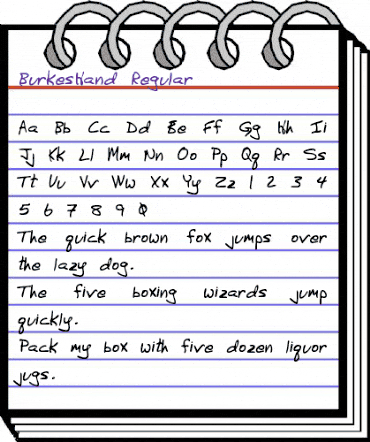 BurkesHand Regular
Aa Bb Cc Dd Ee Ff Gg Hh Ii
Jj Kk Ll Mm Nn Oo Pp Qq Rr Ss
Tt Uu Vv Ww Xx Yy Zz 1 2 3 4
5 6 7 8 9 0
The quick brown fox jumps over
the lazy dog.
The five boxing wizards jump
quickly.
Pack my box with five dozen liquor
jugs.